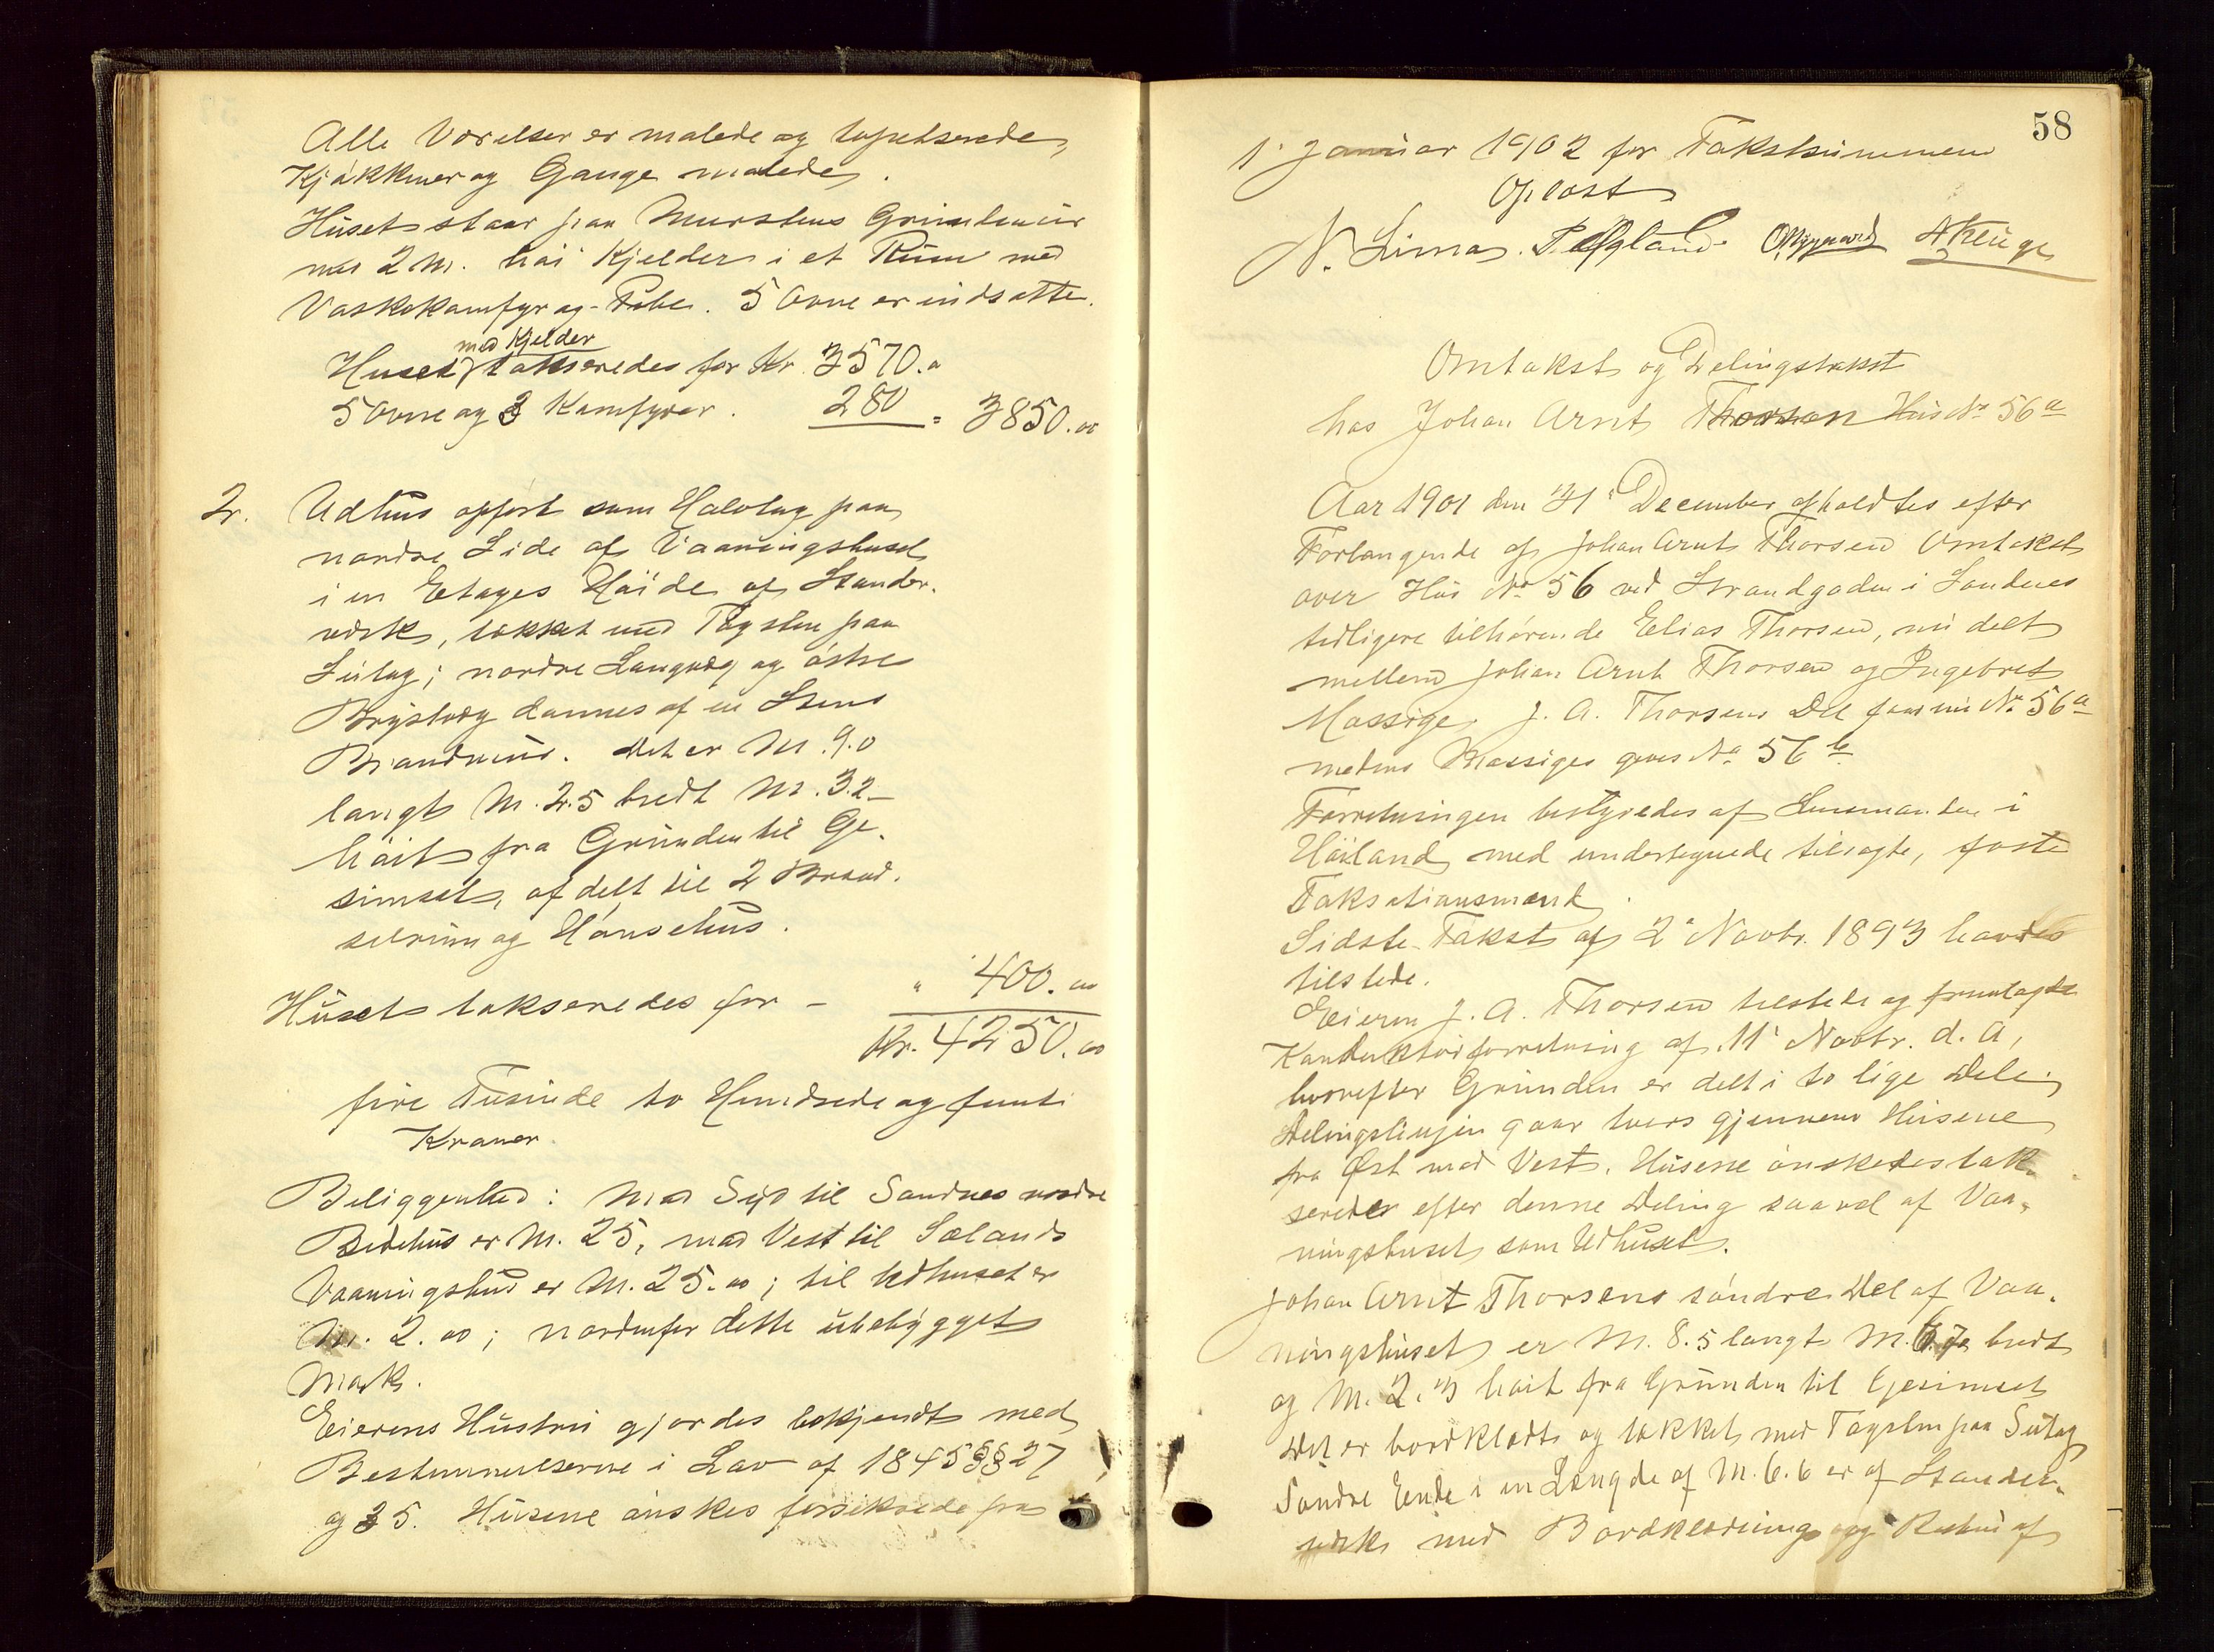 Alle Værelser er malede og tapetserede,
Kjøkkner og Gange malede.
Huset staar paa Murstens Grundmur
med 2 M. høi Kjelder i et Rum med
Vaskekamfyr og Pibe. 5 Ovne er indsatte.
med Kjelder
Huset takseredes for Kr. 3570.00
5 Ovne og 3 Kamfyrer. 280 = 3850.00
2. Udhus opført som Halvtag paa
nordre Side af Vaaningshuset
i en Etages Høide af Stender-
værk, tækket med Tagsten paa
Sutag; nordre Langvæg og østre
Brystvæg dannes af en Stens
Brandmur. Det er M. 9.0
langt M. 2.5 bredt M. 3.2
høit fra Grunden til Ge-
simset, afdelt til 2 Brænd-
selrum og Hønsehus.
Huset takseredes for - " 400.00
Kr. 4250.00
fire Tusinde to Hundrede og femti
Kroner
Beliggenhed: Mod Syd til Sandnes nordre
Bedehus er M. 25, mod Vest til Sælands
Vaaningshus er M. 25.00; til Udhuset er
M. 2.00; nordenfor dette ubebygget
Mark.
Eierens Hustru gjordes bekjendt med
Bestemmelserne i Lov af 1845 §§ 27
og 35. Husene ønskes forsikrede fra
58
1' Januar 1902 for Takstsummen
Oplæst
N. Lima. T. Øgland.
Omtakst og Delingstakst
hos Johan Arnt Thorsen Hus No 56 a
Aar 1901 den 31' December afholdtes efter
Forlangende af Johan Arnt Thorsen Omtakst
over Hus No 56 ved Strandgaden i Sandnes
tidligere tilhørende Elias Thorsen, nu delt
mellem Johan Arnt Thorsen og Ingebret
Massige. J. A. Thorsens Del faar nu No 56 a
medens Massiges gives No 56 b.
Forretningen bestyredes af Lensmanden i
Høiland med undertegnede tilsagte, faste
Taksationsmænd.
Sidste Takst af 2' Novbr. 1893 havdes
tilstede.
Eieren J. A. Thorsen tilstede og fremlagde
Konduktørforretning af 11' Novbr. d. A,
hvorefter Grunden er delt i to lige Dele;
Delingslinjen gaar tvers gjennem Husene
fra Øst mod Vest. Husene ønskedes tak-
serede efter denne Deling saavel af Vaa-
ningshuset som Udhuset.
Johan Arnt Thorsens søndre Del af Vaa-
ningshuset er M. 8.5 langt M. 6.70 bredt
og M. 2.3 høit fra Grunden til Gesimset
Det er bordklædt og tækket med Tagsten paa Sutag
Søndre Ende i en Længde af M. 6.6 er af Stender-
værk med Bordklædning og Resten af